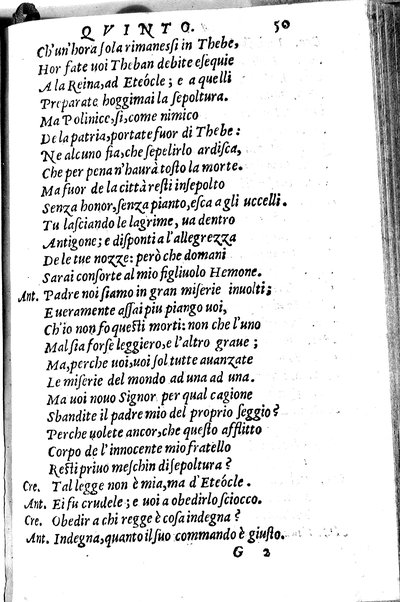 QVINTO. 50
Ch'un'hora sola rimanessi in Thebe,
Hor fate uoi Theban debite esequie
A la Reina, ad Eteòcle; e a quelli
Preparate hoggimai la sepoltura.
Ma Polinice, sì, come nimico
De la patria, portate fuor di Thebe:
Ne alcuno fia, che sepelirlo ardisca,
Che per pena n'haurà tosto la morte.
Ma fuor de la città resti insepolto
Senza honor, senza pianto, esca a gli uccelli.
Tu lasciando le lagrime, ua dentro
Antigone; e disponti a l'allegrezza
De le tue nozze: però che domani
Sarai consorte al mio figliuolo Hemone.
Ant. Padre noi siamo in gran miserie inuolti;
E ueramente assai piu piango uoi,
Ch'io non fo questi morti: non che l'uno
Mal sia forse leggiero, e l'altro graue;
Ma, perche uoi, uoi sol tutte auanzate
Le miserie del mondo ad una ad una.
Ma uoi nouo Signor per qual cagione
Sbandite il padre mio del proprio seggio?
Perche uolete ancor, che questo afflitto
Corpo de l'innocente mio fratello
Resti priuo meschin di sepoltura?
Cre. Tal legge non è mia, ma d'Eteòcle.
Ant. Ei fu crudele; e uoi a obedirlo sciocco.
Cre. Obedir a chi regge è cosa indegna?
Ant. Indegna, quanto il suo commando è giusto.
G 2